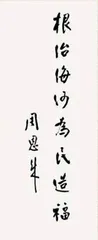 根治海河为民造福
周恩来